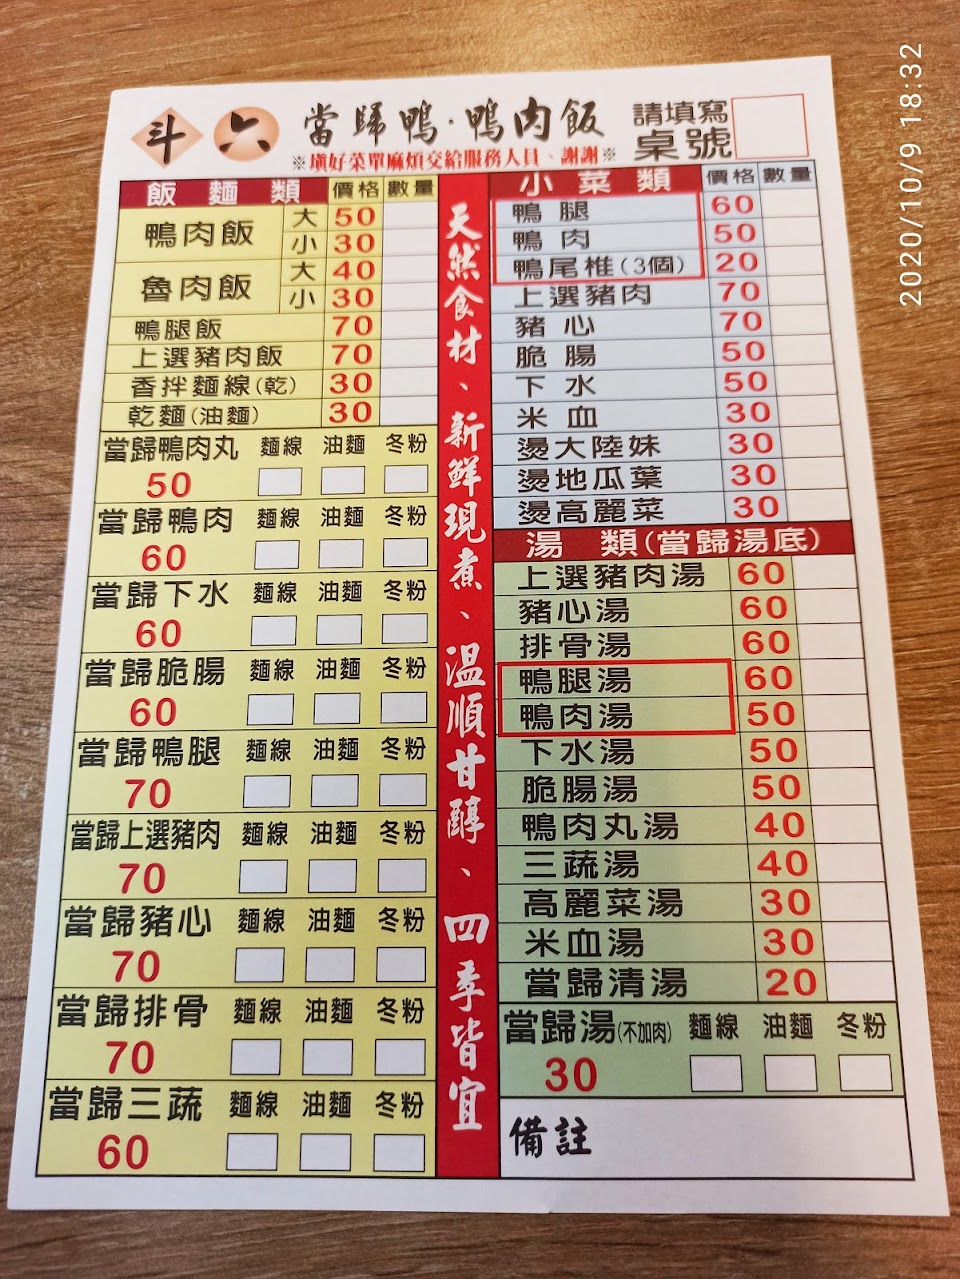 斗六 當歸鴨·鴨肉飯
請填寫
桌號
※填好菜單麻煩交給服務人員、謝謝※
飯麵類 價格 數量
鴨肉飯 大 50
小 30
魯肉飯 大 40
小 30
鴨腿飯 70
上選豬肉飯 70
香拌麵線(乾) 30
乾麵(油麵) 30
當歸鴨肉丸 麵線 油麵 冬粉
50
當歸鴨肉 麵線 油麵 冬粉
60
當歸下水 麵線 油麵 冬粉
60
當歸脆腸 麵線 油麵 冬粉
60
當歸鴨腿 麵線 油麵 冬粉
70
當歸上選豬肉 麵線 油麵 冬粉
70
當歸豬心 麵線 油麵 冬粉
70
當歸排骨 麵線 油麵 冬粉
70
當歸三蔬 麵線 油麵 冬粉
60
天然食材、新鮮現煮、溫順甘醇、四季皆宜
小菜類 價格 數量
鴨腿 60
鴨肉 50
鴨尾椎(3個) 20
上選豬肉 70
豬心 70
脆腸 50
下水 50
米血 30
燙大陸妹 30
燙地瓜葉 30
燙高麗菜 30
湯類(當歸湯底)
上選豬肉湯 60
豬心湯 60
排骨湯 60
鴨腿湯 60
鴨肉湯 50
下水湯 50
脆腸湯 50
鴨肉丸湯 40
三蔬湯 40
高麗菜湯 30
米血湯 30
當歸清湯 20
當歸湯(不加肉) 麵線 油麵 冬粉
30
備註
2020/10/9 18:32